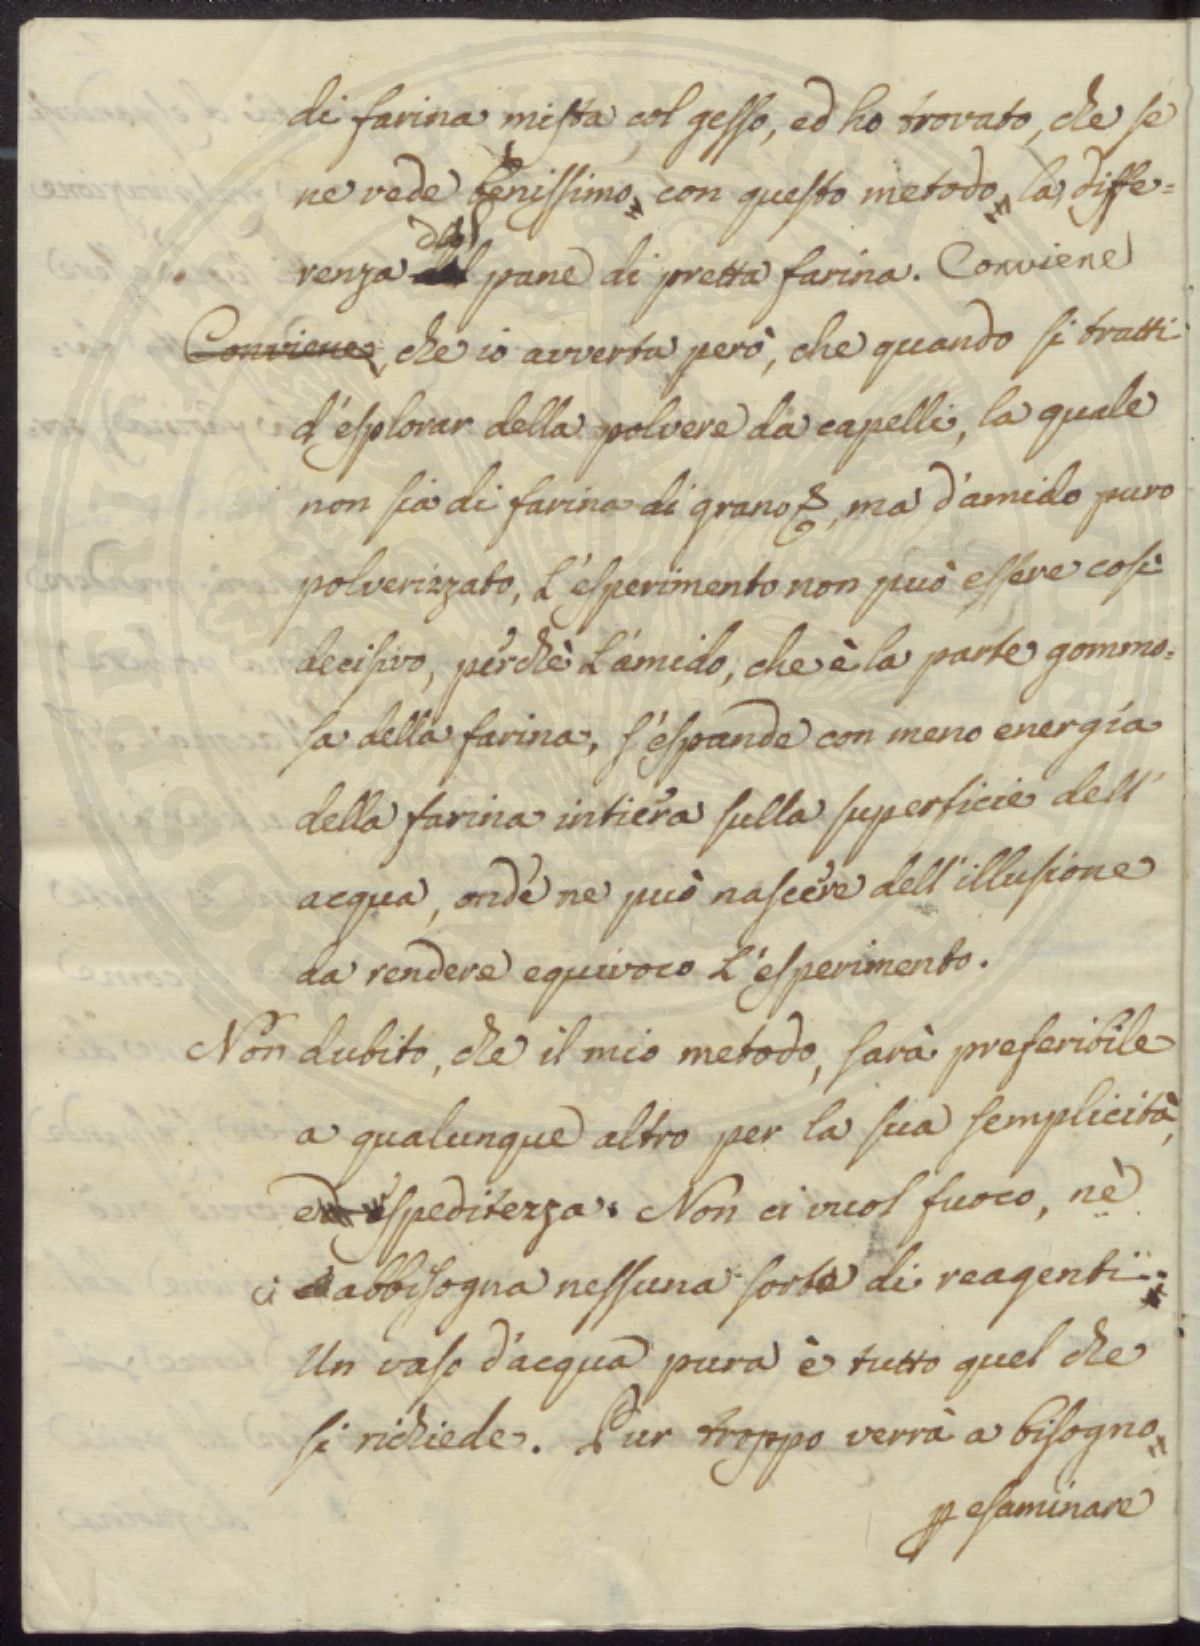 di farina mista col gesso, ed ho trovato, che se
ne vede benissimo, con questo metodo, la diffe=
renza dal pane di pretta farina. Conviene
Conviene, che io avverta però, che quando si tratti
d'esplorar della polvere da capelli, la quale
non sia di farina di grano, ma d'amido puro
polverizzato, L'esperimento non può essere così
decisivo, perchè L'amido, che è la parte gommo=
sa della farina, s'espande con meno energía
della farina intiera sulla superficie dell'
acqua, onde ne può nascere dell'illusione
da rendere equivoco L'esperimento.
Non dubito, che il mio metodo, sarà preferibile
a qualunque altro per la sua semplicità,
ed espeditezza. Non ci vuol fuoco, nè
ci abbisogna nessuna sorte di reagenti:
Un vaso d'acqua pura è tutto quel che
si richiede. Pur troppo verrà a bisogno
esaminare